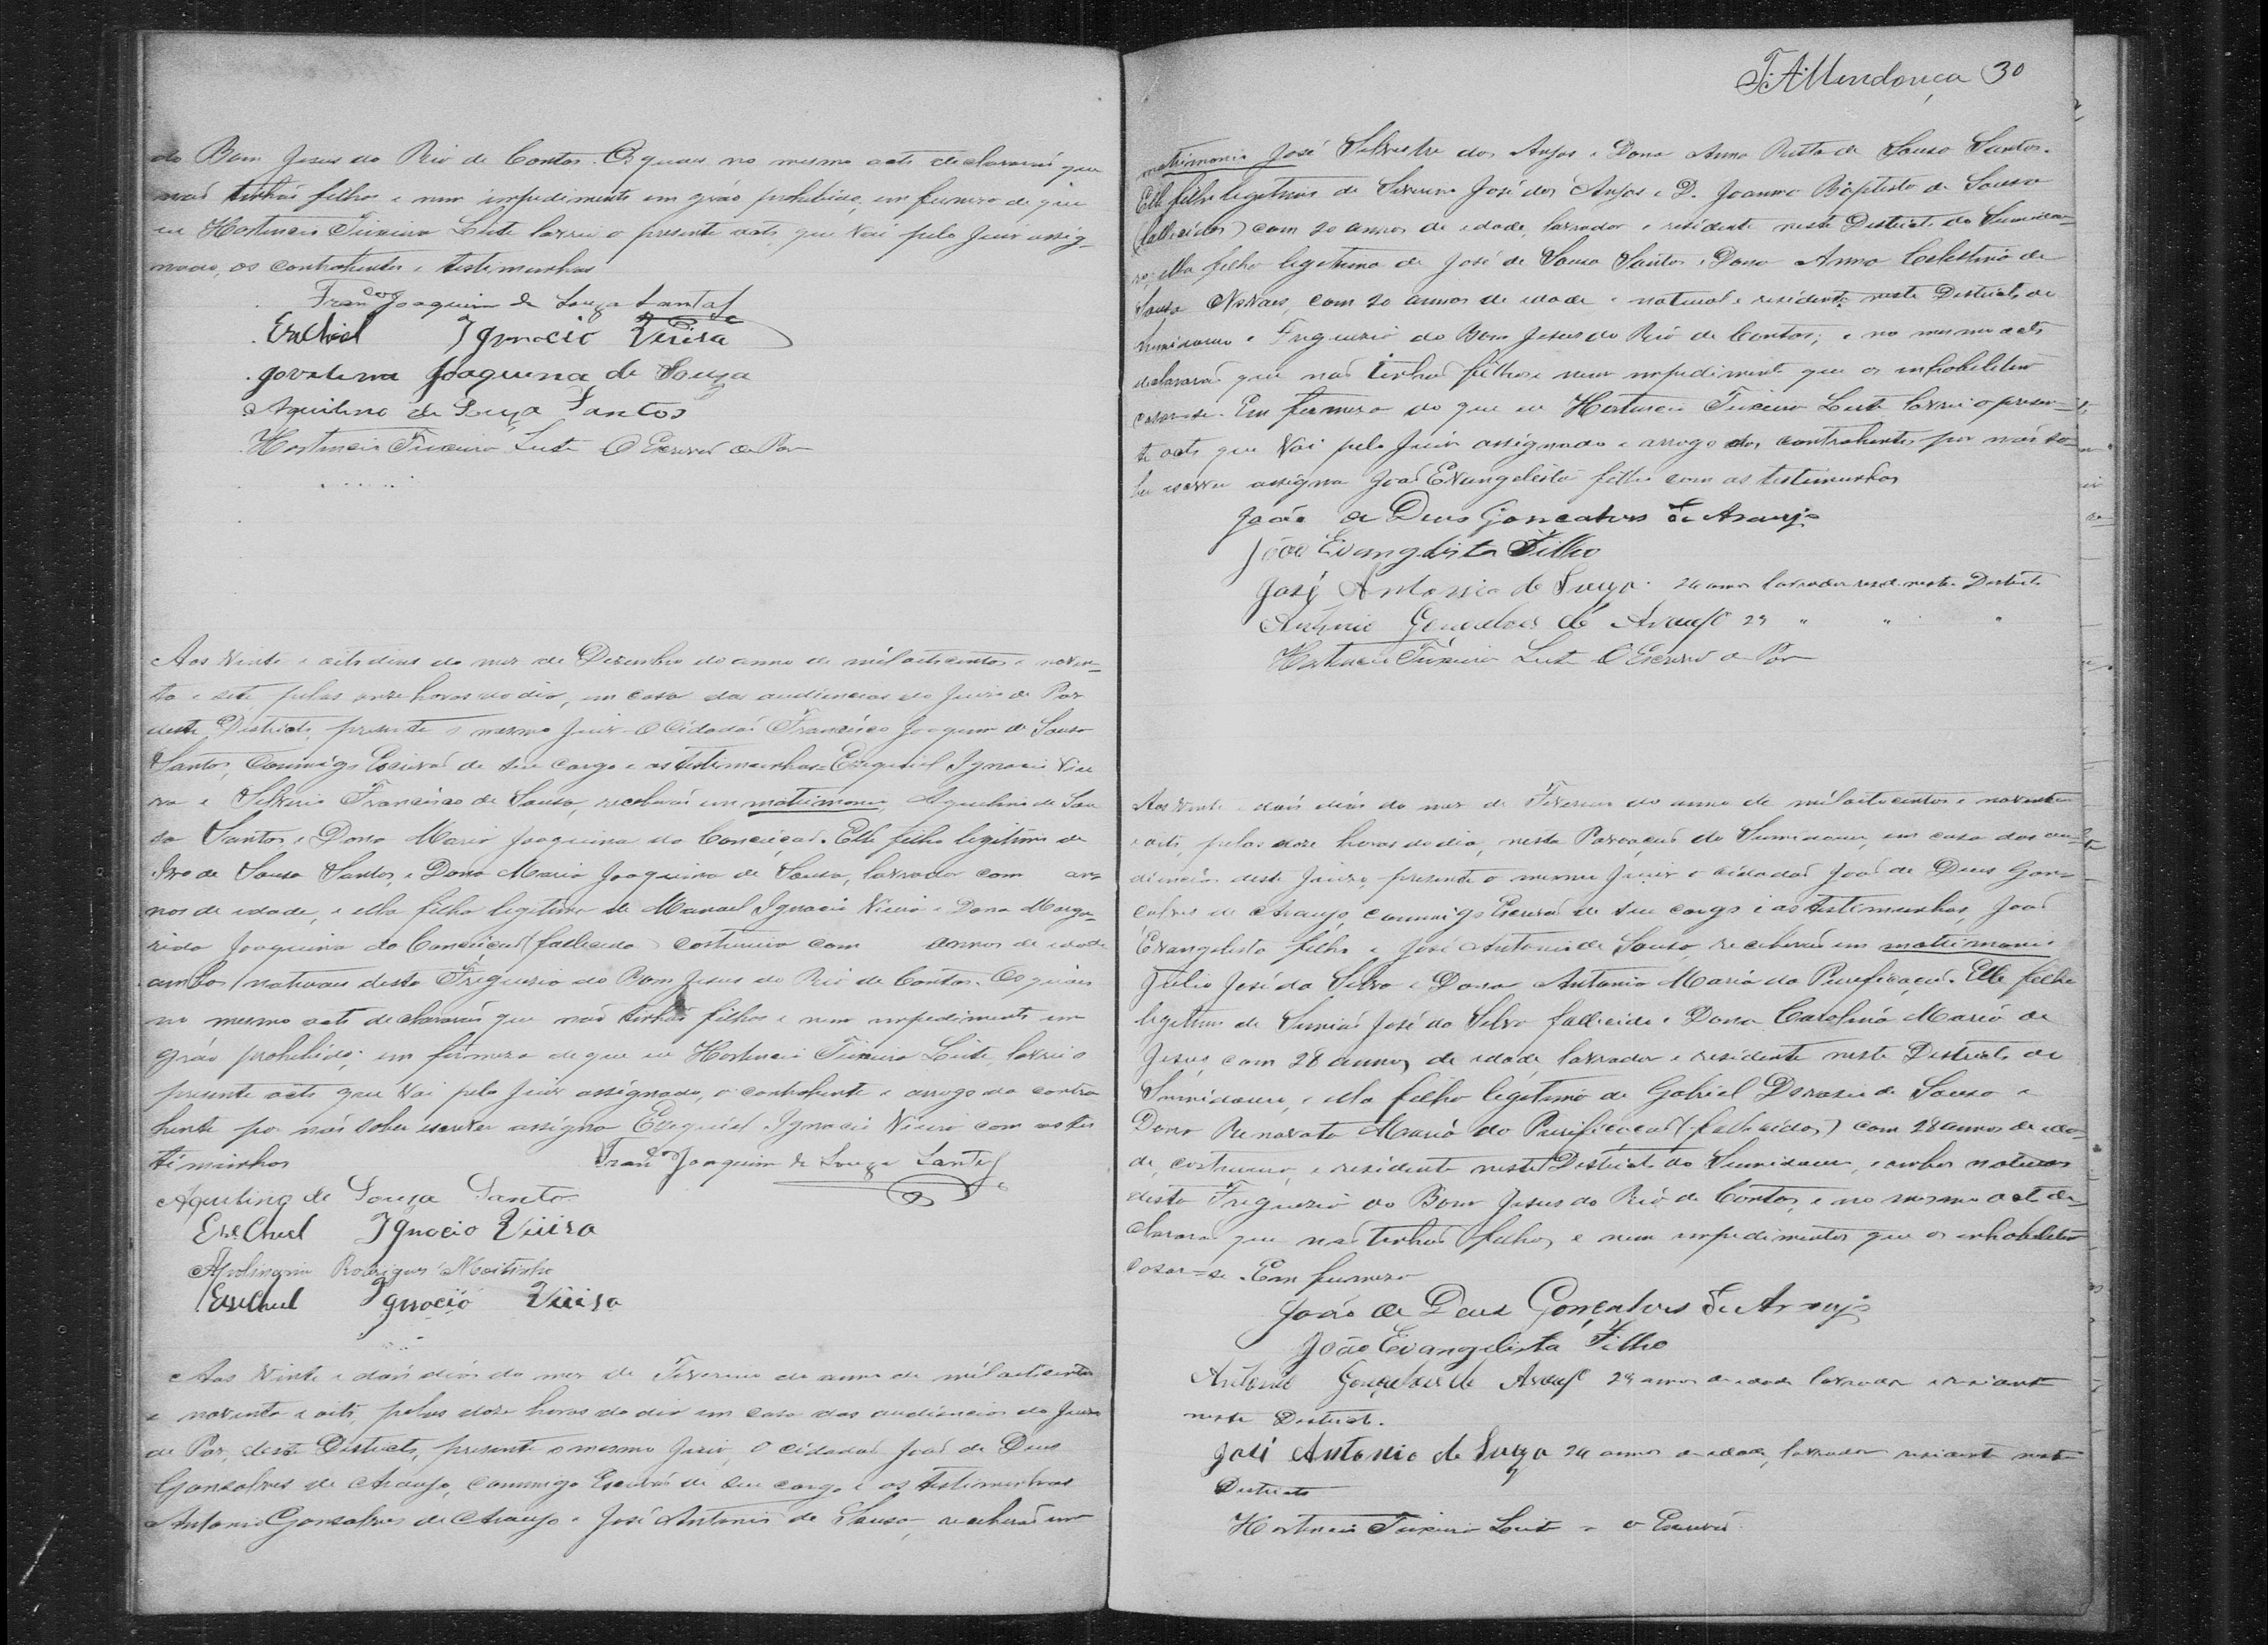 do Bom Jesus do Rio de Contas. Os quaes no mesmo acto declararaõ que
naõ tinhaõ filhos e nem impedimento em gráo prohibido, em firmeza de que
eu Hortencio Teixeira Leite lavrei o presente acto, que vai pelo Juiz assig-
nado, os contrahentes e testimunhas
Franco Joaquim de Souza Santos
Esechiel Ignacio Vieira
Jovelina Joaquina de Souza
Aquilino de Souza Santos
Hortencio Teixeira Leite O Escrivaõ de Paz
Aos vinte e oito dias do mez de Dezembro do anno de mil oito centos e noven-
ta e sete pelas onze horas do dia, em casa das audiencias do Juizo de Paz
deste Districto, presente o mesmo Juiz O Cidadaõ Francisco Joaquim de Sousa
Santos, Commigo Escrivaõ de seu cargo e as testimunhas Ezequiel Ignacio Viei
ra e Silverio Francisco de Sousa, receberaõ em matrimonio Aquilino de Sou
sa Santos e Dona Maria Joaquina da Conceiçaõ. Elle filho legitimo de
de Sousa Santos, e Dona Maria Joaquina de Sousa, lavrador com an
nos de idade, e ella filha legitima de Manoel Ignacio Vieira e Dona Marga-
rida Joaquina da Conceiçaõ (fallecida) costureira com annos de idade
ambos naturaes desta Freguezia do Bom Jesus do Rio de Contas. Os quaes
no mesmo acto declararaõ que naõ tinhaõ filhos e nem impedimento em
gráo prohibido; em firmeza de que eu Hortencio Teixeira Leite, lavrei o
presente acto que vai pelo Juiz assignado, o contrahente e arogo da contra
hente por naõ saber escrever assigna Ezequiel Ignacio Vieira com as tes
timunhas
Franco Joaquim de Souza Santos
Aquilino de Souza Santos
Esechiel Ignacio Vieira
Apolinario Rodrigues Moitinho
Esechiel Ignacio Vieira
Aos vinte e dois dias do mez de Fevereiro do anno de mil oitocentos
e noventa e oito, pelas doze horas do dia em casa das audiencias do Juizo
de Paz, deste Districto, presente o mesmo Juiz, o cidadaõ Joaõ de Deus
Gonsalves de Araujo, commigo Escrivaõ de seu cargo e as testimunhas
Antonio Gonsalves de Araujo e José Antonio de Sousa, receberaõ em
T. A. Mendonça 30
matrimonio José Silvestre dos Anjos e Dona Anna Ritta de Sousa Santos.
Elle filho legitimo de Severino José dos Anjos e D. Joanna Baptista de Sousa
(fallecidos) com 20 annos de idade, lavrador e residente neste Districto do Sumidou-
ro; ella filha legitima de José de Sousa Santos e Dona Anna Celestina de
Sousa Novaes, com 20 annos de idade e natural e residente neste Districto do
Sumidouro e Freguezia do Bom Jesus do Rio de Contas; e no mesmo acto
declararaõ que naõ tinhaõ filhos e nem impedimento que os inhabilitem
casar-se. Em firmeza do que eu Hortencio Teixeira Leite lavrei o presen-
te acto que vai pelo Juiz assignado e arrogo dos contrahentes por naõ sa-
ber escrever assigna Joaõ Evangelista filho com as testimunhas
João de Deus Gonçalves de Araujo
João Evangelista Filho
José Antonio de Souza 24 annos lavrador resd. neste Districto
Antonio Gonçalves de Araujo 29 " " "
Hortencio Teixeira Leite O Escrivaõ de Paz
Aos vinte e dois dias do mez de Fevereiro do anno de mil oitocentos e noventa
e oito, pelas doze horas do dia, nesta Povoaçaõ do Sumidouro, em casa das au-
diencias deste Juizo, presente o mesmo Juiz o cidadaõ Joaõ de Deus Gon-
çalves de Araujo, commigo Escrivaõ de seu cargo e as testimunhas, Joaõ
Evangelista filho e José Antonio de Sousa, receberaõ em matrimonio
Julio José da Silva e Dona Antonia Maria da Purificaçaõ. Elle filho
legitimo de José da Silva fallecido e Dona Carolina Maria de
Jesus, com 28 annos de idade, lavrador e residente neste Districto do
Sumidouro, e ella filha legitima de Gabriel de Sousa e
Dona Renovata Maria da Purificaçaõ (fallecidos) com 28 annos de ida-
de, costureira, e residente neste Districto do Sumidouro, e ambos naturaes
desta Freguezia do Bom Jesus do Rio de Contas, e no mesmo acto de-
clararaõ que naõ tinhaõ filhos e nem impedimentos que os inhabilitem
casar-se. Em firmeza
João de Deus Gonçalves de Araujo
João Evangelista Filho
Antonio Gonçalves de Araujo 29 annos de idade lavrador e residente
neste Districto.
José Antonio de Souza 24 annos de idade, lavrador residente neste
Districto
Hortencio Teixeira Leite o Escrivaõ